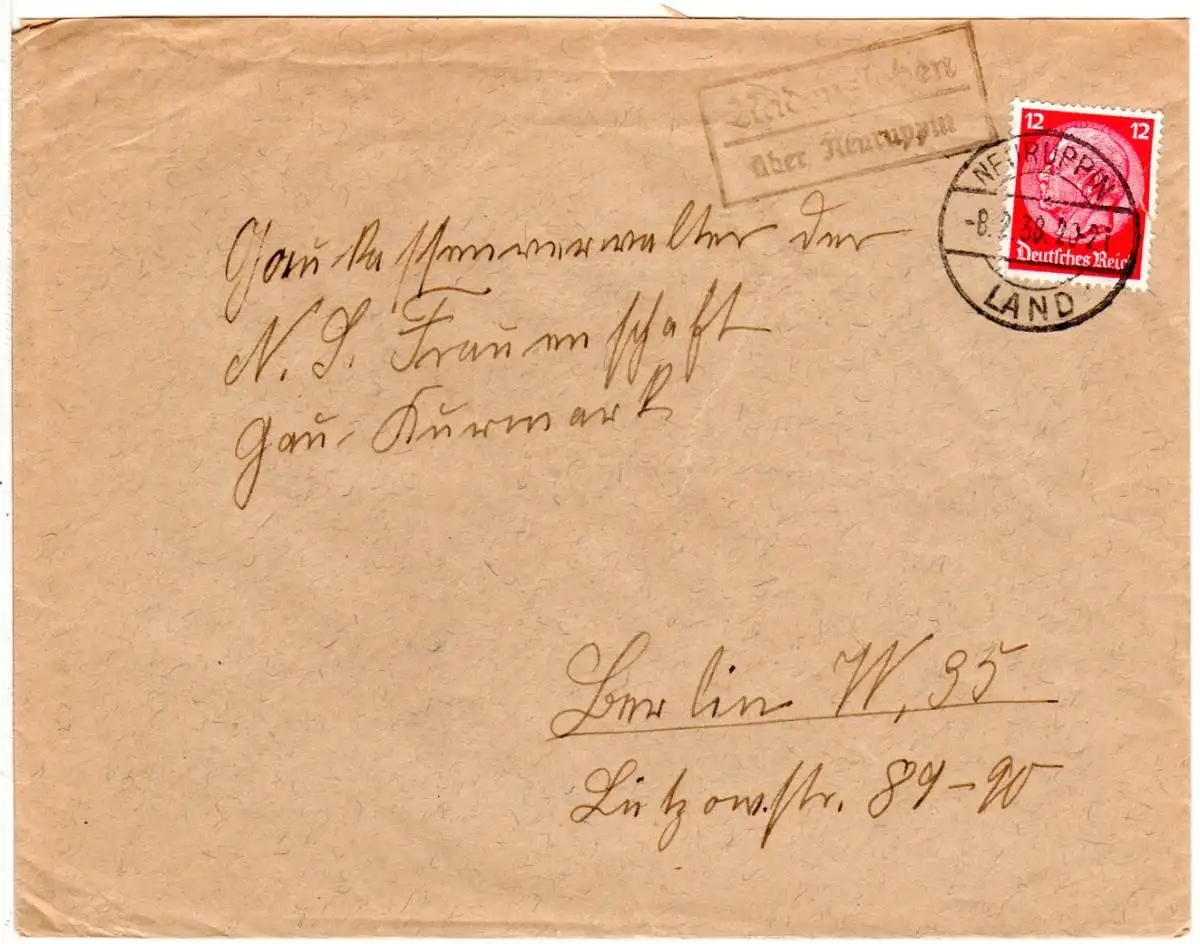 über Neuruppin
12 12
Deutsches Reich
NEURUPPIN
-8. 38. 20-21
LAND
Gaukassenverwalter der
N. S. Frauenschaft
Gau-Kurmark
Berlin W, 35
Lützowstr. 89-90